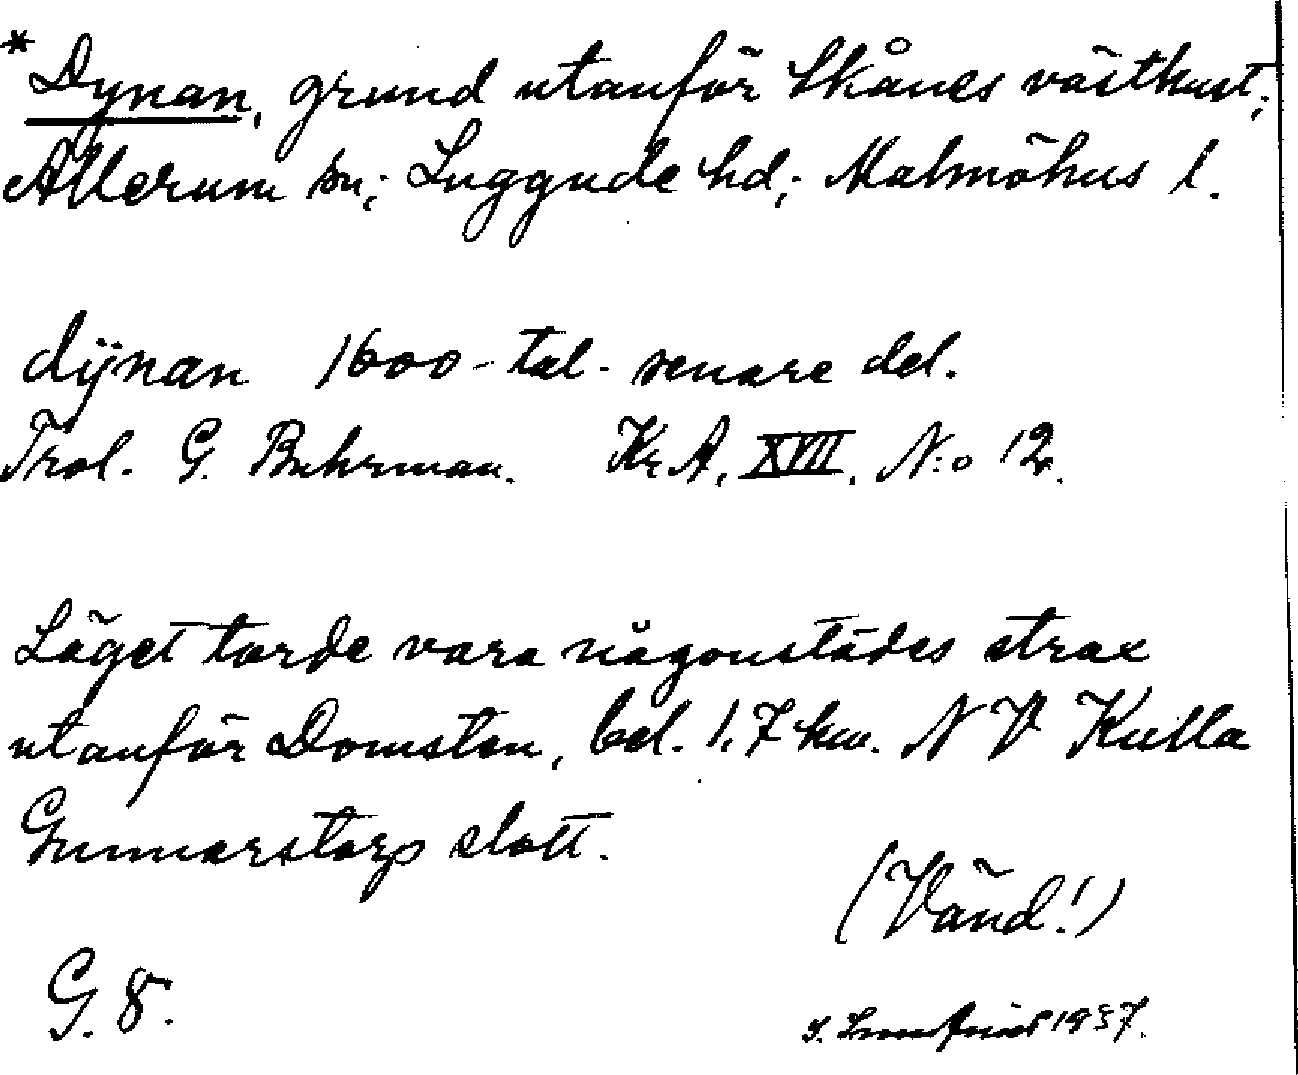 * Dynan, grund utanför Skånes västkust;
Allerum sn; Luggude hd; Malmöhus l.
dÿnan 1600-tal. senare del.
Trol. G. Buhrman. Kr.A. XVII. N:o 12.
Läget torde vara någonstädes strax
utanför Domsten, bel. 1,7 km. NV Kulla
Gunnarstorp slott.
(Vänd!)
G. 8.
1937.